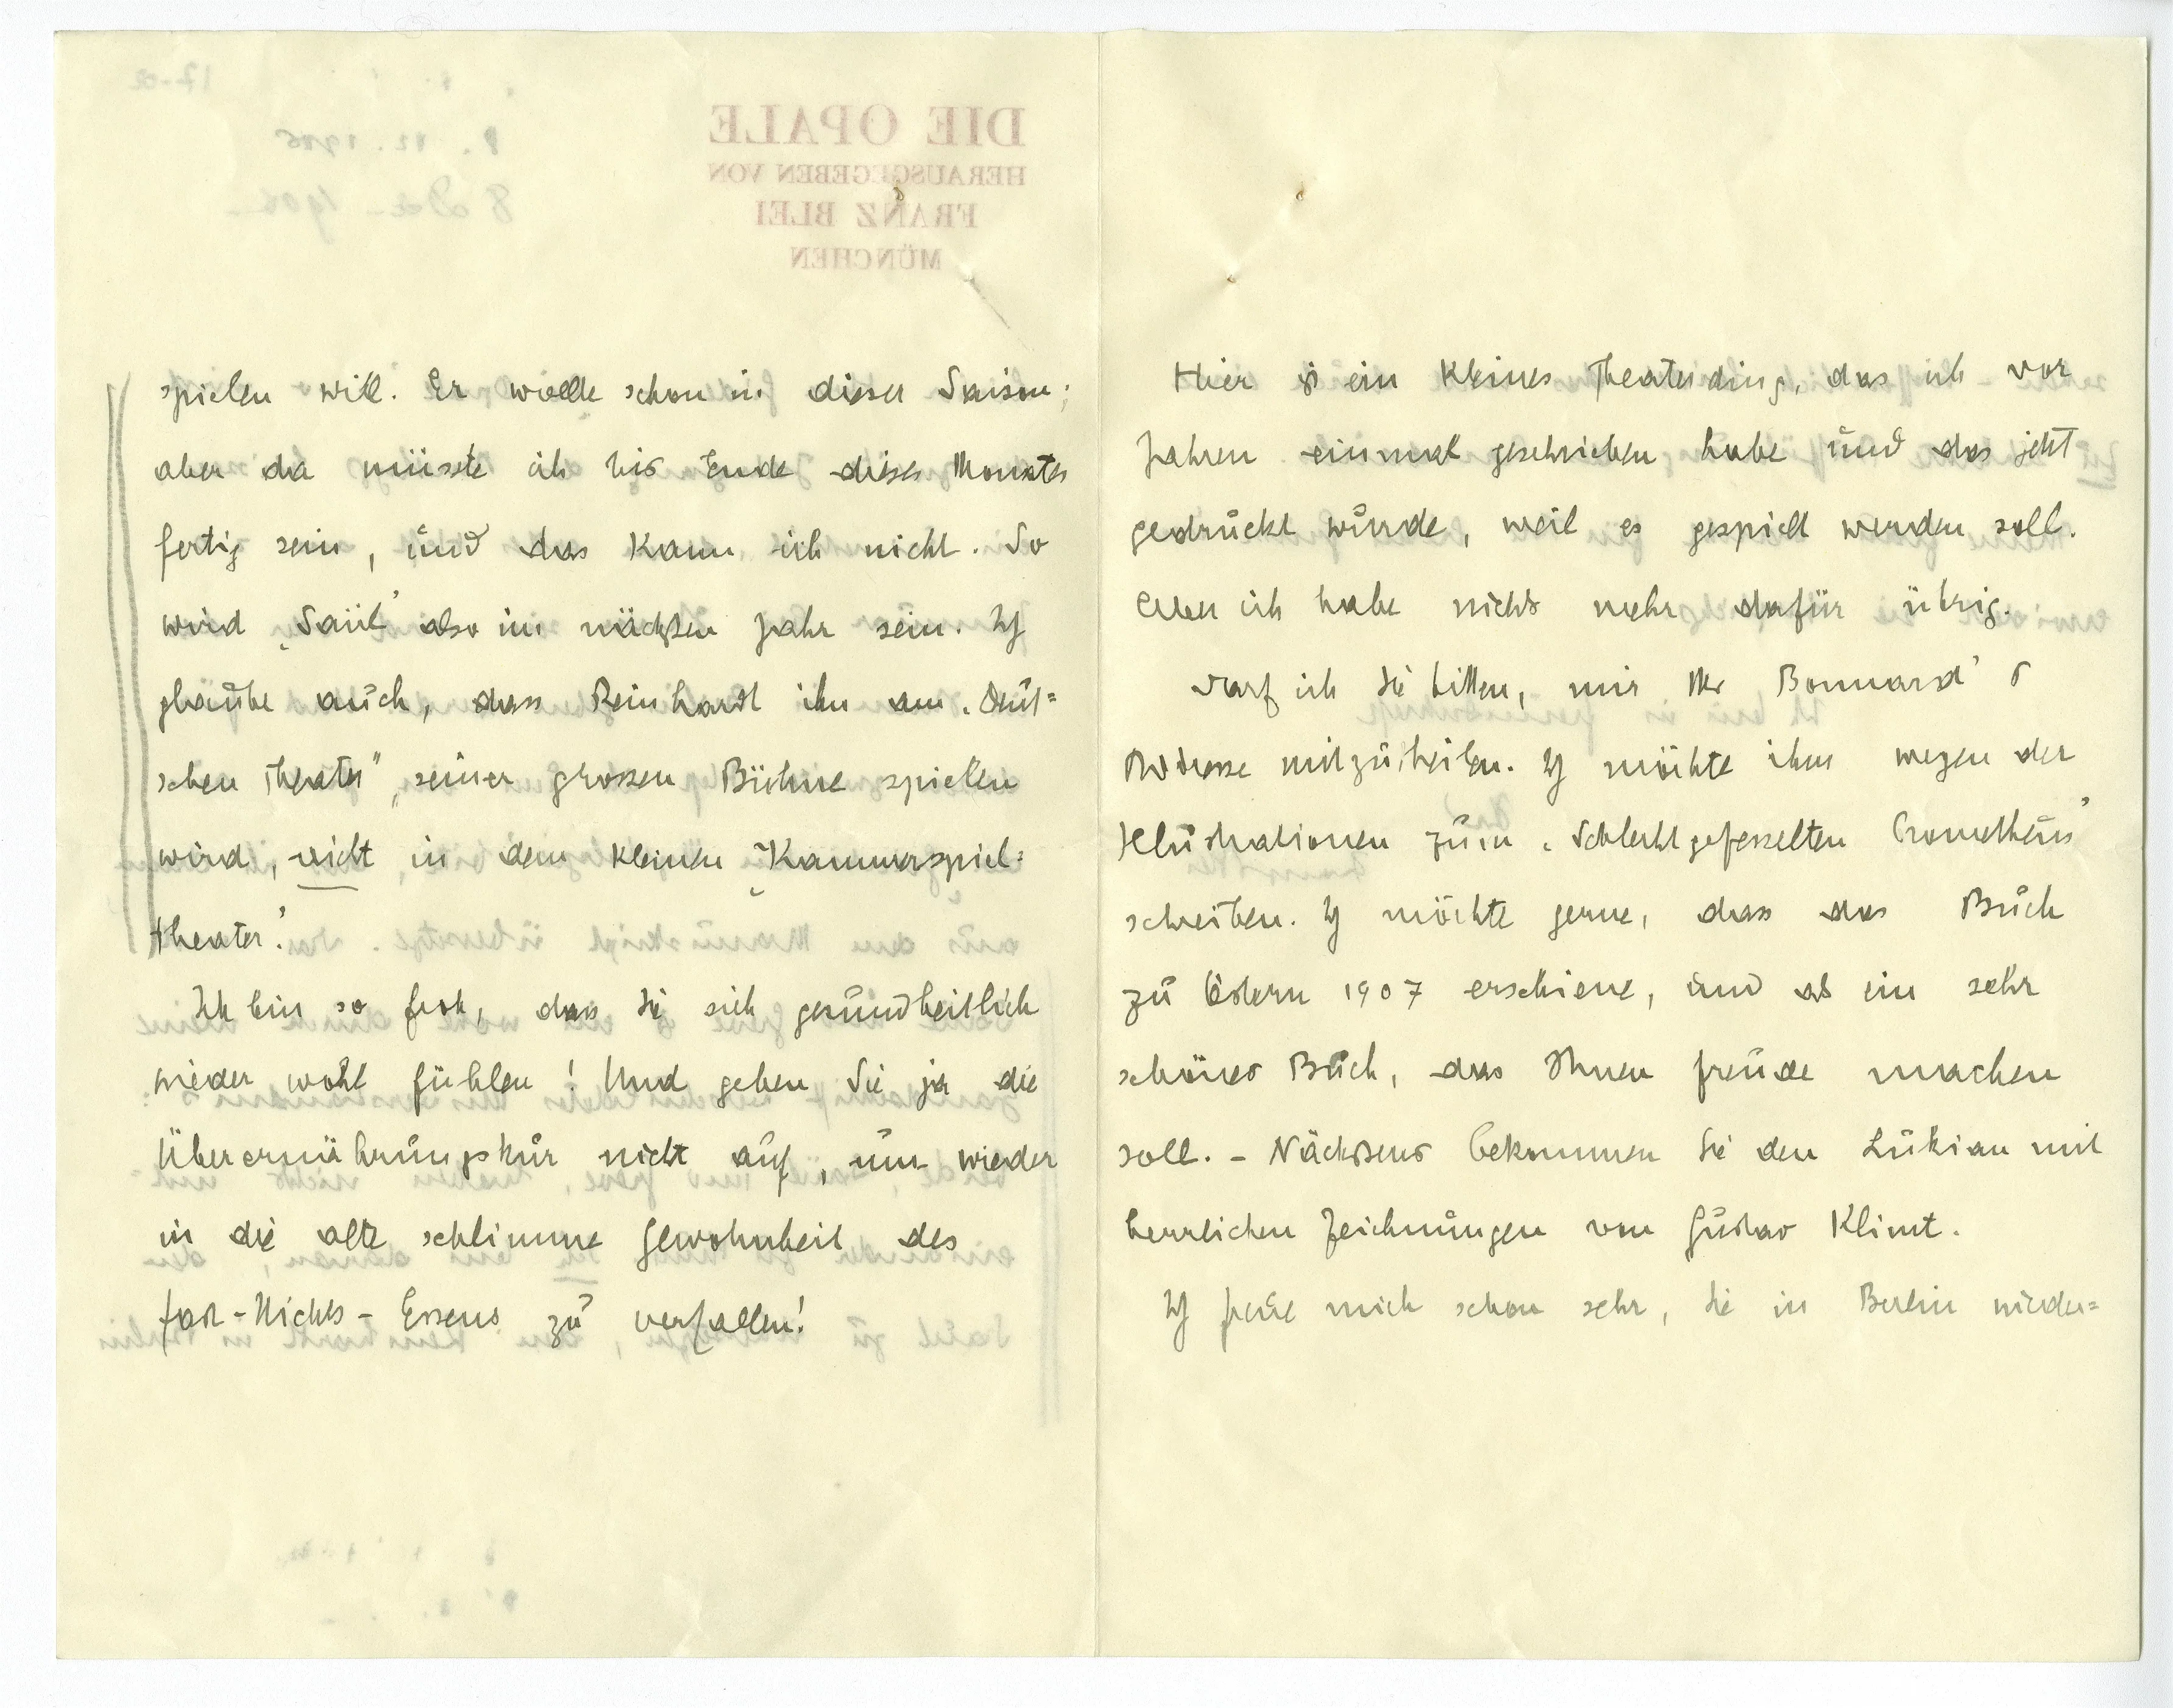 spielen will. Er wollte schon in dieser Saison;
aber da müsste ich bis Ende dieses Monates
fertig sein, und das kann ich nicht. So
wird „Saül" also im nächsten Jahr sein. Ich
glaube auch, dass Reinhardt ihn am „Deut=
schen Theater", seiner grossen Bühne spielen
wird, nicht in dem kleinen „Kammerspiel=
theater."
Ich bin so froh, dass Sie sich gesundheitlich
wieder wohl fühlen! Und geben Sie ja die
Überernährungskur nicht auf, um wieder
in die alte schlimme Gewohnheit des
fast-Nichts-Essens zu verfallen!
Hier ist ein kleines Theaterding, das ich vor
Jahren einmal geschrieben habe und das jetzt
gedruckt wurde, weil es gespielt werden soll.
Aber ich habe nichts mehr dafür übrig.
Darf ich Sie bitten, mir Mr Bonnard's
Adresse mitzutheilen. Ich möchte ihm wegen der
Illustrationen zum „Schlechtgefesselten Prometheus"
schreiben. Ich möchte gerne, dass das Buch
zu Ostern 1907 erschiene, und als ein sehr
schönes Buch, das Ihnen Freude machen
soll. - Nächstens bekommen Sie den Lukian mit
herrlichen Zeichnungen von Gustav Klimt.
Ich freue mich schon sehr, Sie in Berlin wieder=
DIE OPALE
HERAUSGEGEBEN VON
FRANZ BLEI
MÜNCHEN